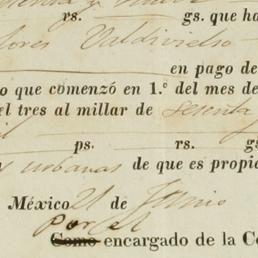 rs. gs. que ha
lores Valdivielso
en pago de
o que comenzó en 1.º del mes de
el tres al millar de sesenta y
il ps. rs. g
y urbanas de que es propie
México 21 de Junio
Por el
Como encargado de la Co